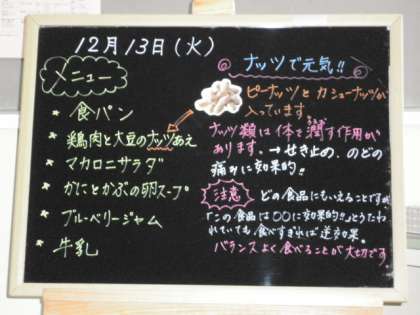 12月13日(火)
メニュー
* 食パン
* 鶏肉と大豆のナッツあえ
* マカロニサラダ
* かにとかぶの卵スープ
* ブルーベリージャム
* 牛乳
ナッツで元気!!
ピーナッツとカシューナッツが
入っています。
ナッツ類は体を潤す作用が
あります。→せき止め、のどの
痛みに効果的!!
注意
どの食品にもいえることですが
「この食品は〇〇に効果的!!」とうたわ
れていても、食べすぎれば逆効果。
バランスよく食べることが大切です